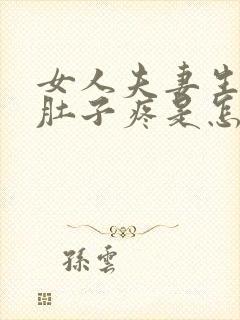 女人夫妻生
肚子疼是怎
孫雲